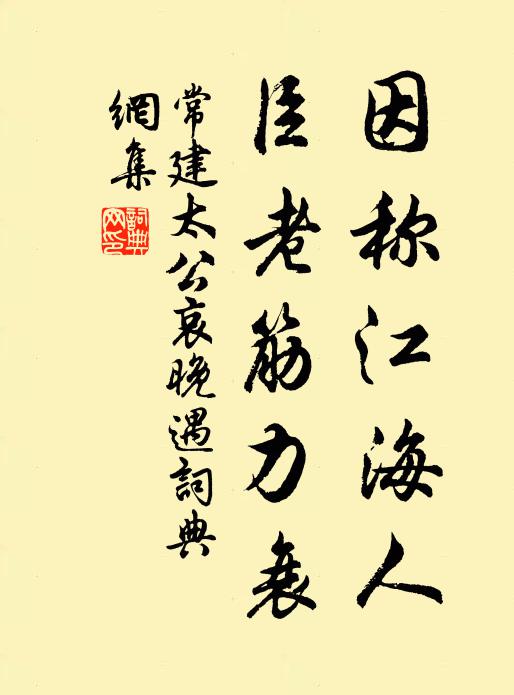 因称江海人
臣老筋力衰
常建太公哀晚遇詞典
網集
詞典
网印